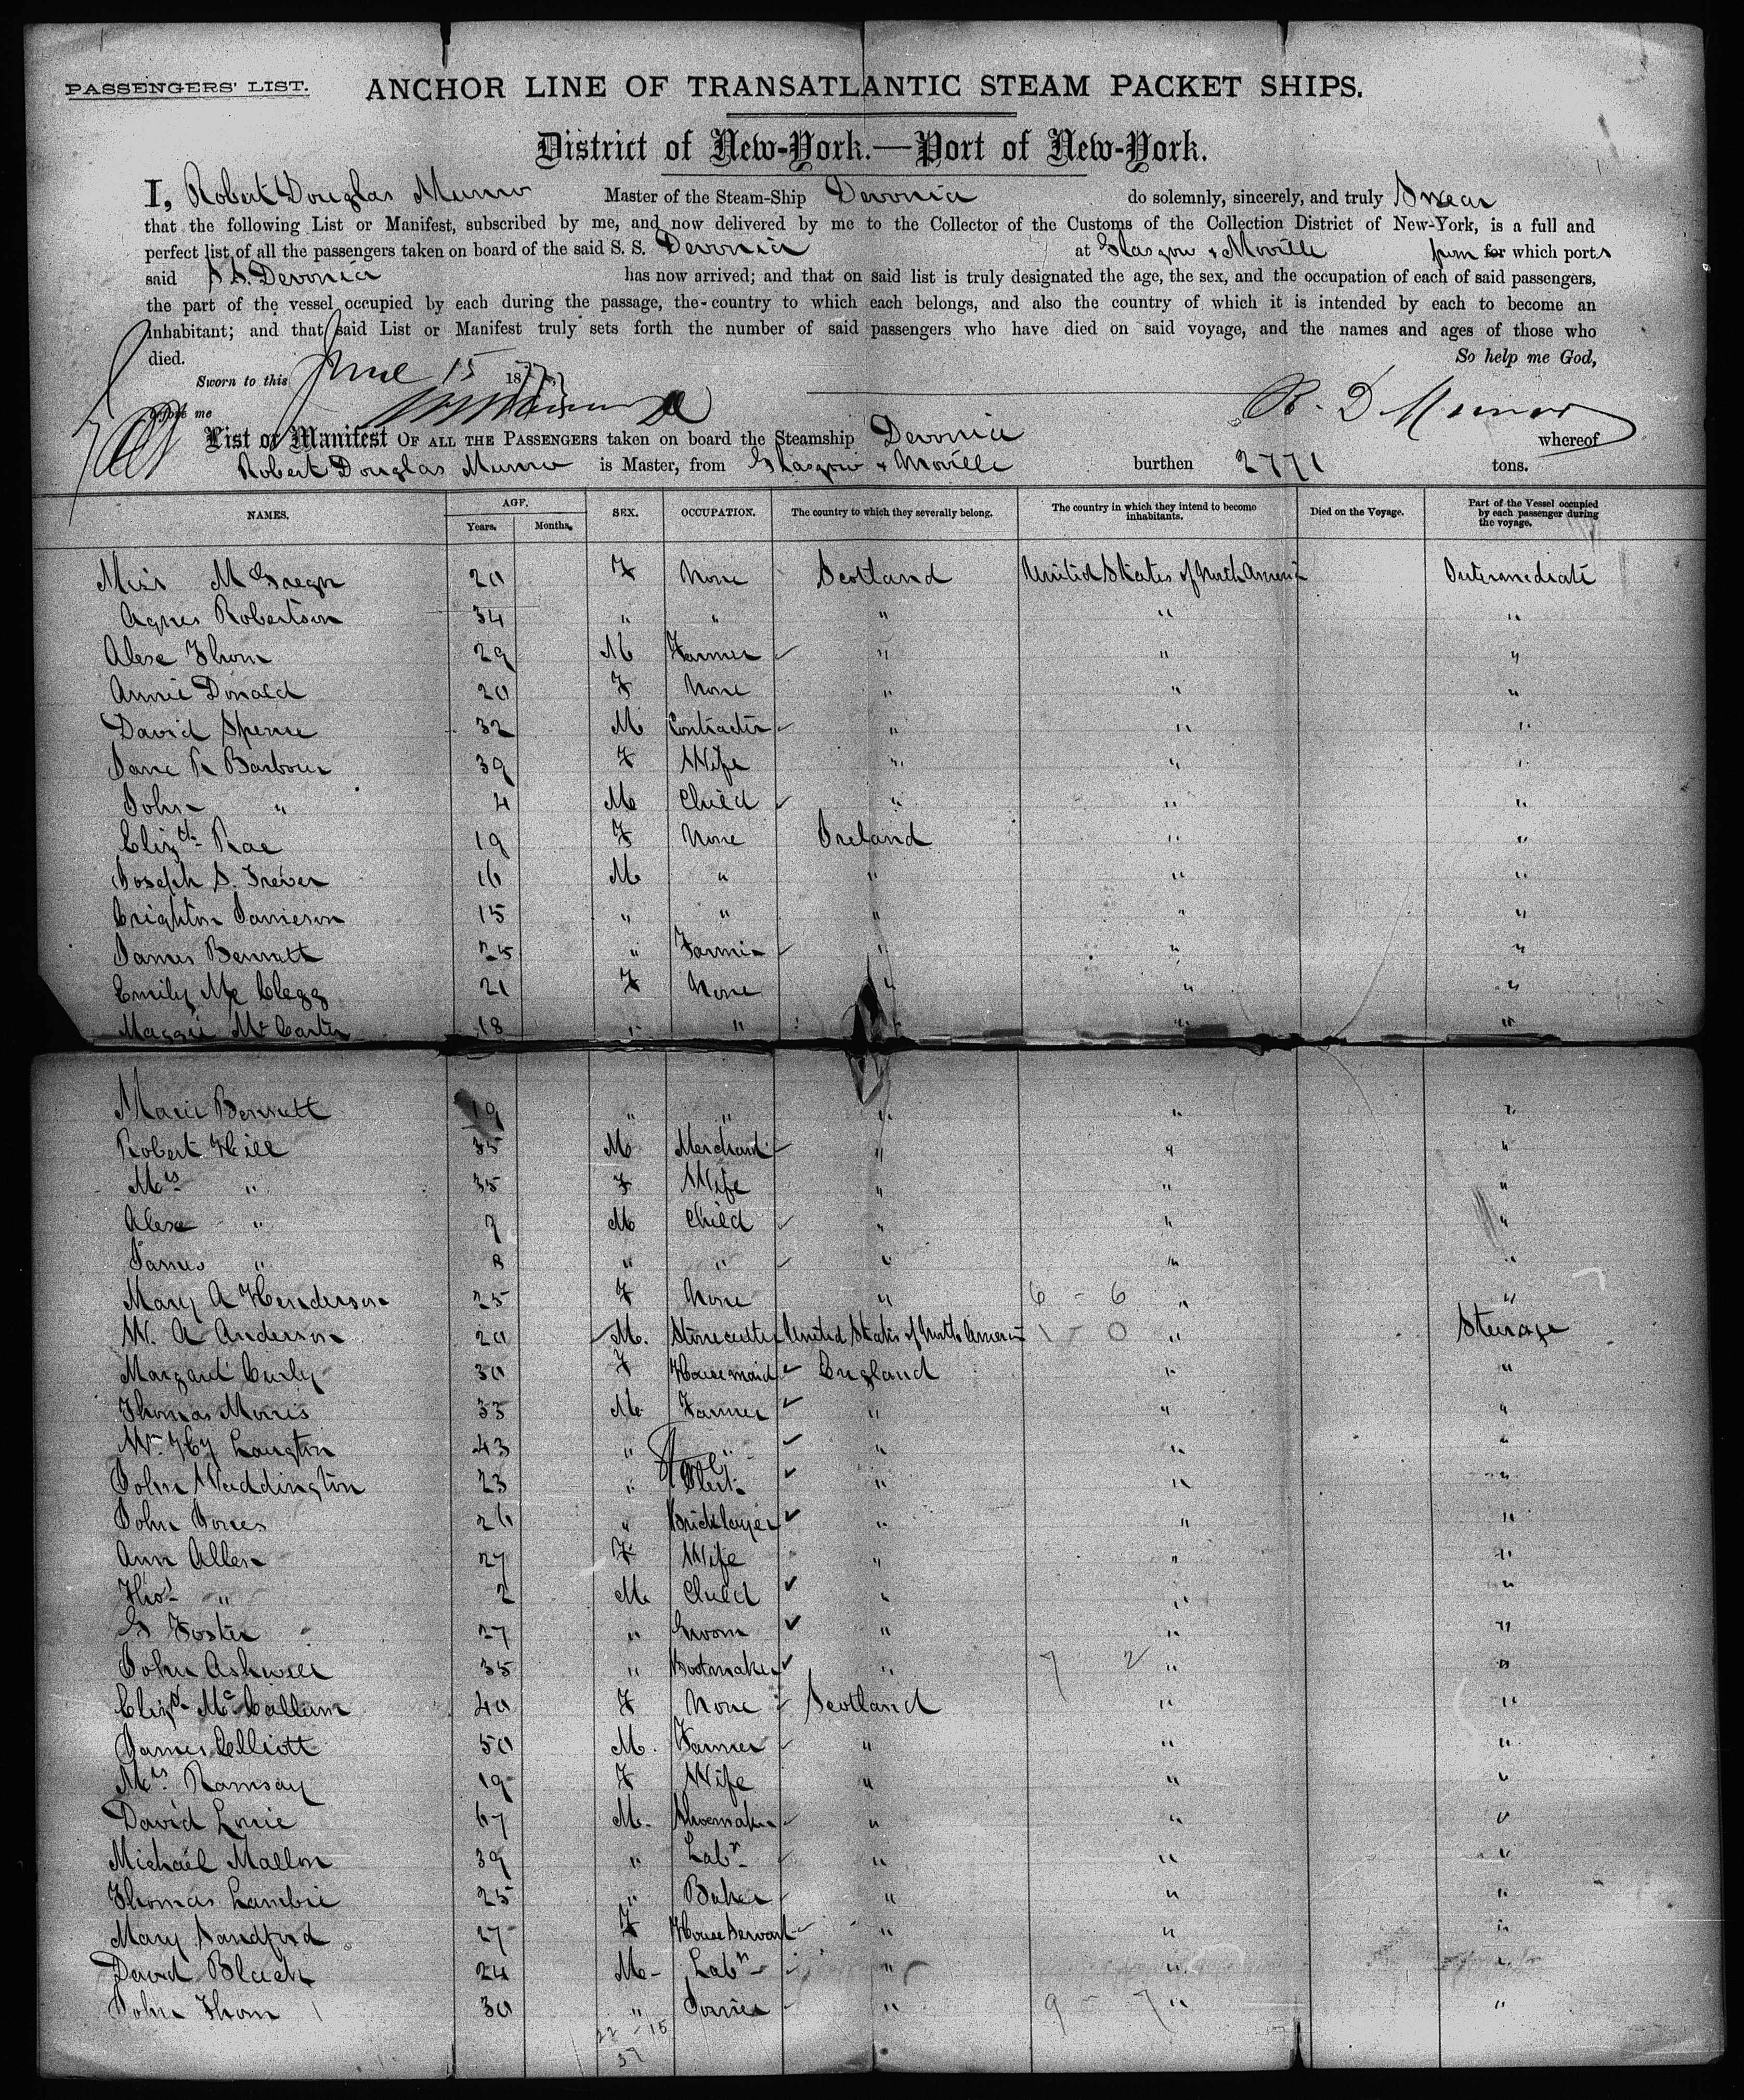 PASSENGERS' LIST. ANCHOR LINE OF TRANSATLANTIC STEAM PACKET SHIPS.
District of New-York.—Port of New-York.
I, Robert Douglas Munro Master of the Steam-Ship Devonia do solemnly, sincerely, and truly Swear
that the following List or Manifest, subscribed by me, and now delivered by me to the Collector of the Customs of the Collection District of New-York, is a full and
perfect list of all the passengers taken on board of the said S. S. Devonia at Glasgow & Moville from for which ports
said S.S. Devonia has now arrived; and that on said list is truly designated the age, the sex, and the occupation of each of said passengers,
the part of the vessel occupied by each during the passage, the country to which each belongs, and also the country of which it is intended by each to become an
inhabitant; and that said List or Manifest truly sets forth the number of said passengers who have died on said voyage, and the names and ages of those who
died. So help me God,
Sworn to this June 15 1877
before me R. D Munro
List or Manifest OF ALL THE PASSENGERS taken on board the Steamship Devonia whereof
Robert Douglas Munro is Master, from Glasgow & Moville burthen 2771 tons.
NAMES. AGE. Years. Months. SEX. OCCUPATION. The country to which they severally belong. The country in which they intend to become inhabitants. Died on the Voyage. Part of the Vessel occupied by each passenger during the voyage.
Miss McGregor 20 F None Scotland United States of North America Intermediate
Agnes Robertson 34 " " " " "
Alexr Thom 29 M Farmer " " "
Annie Donald 20 F None " " "
David Spence 32 M Contractor " " "
Jane R Barbour 39 F Wife " " "
John " 4 M Child " " "
Elizth Rae 19 F None Ireland " "
Joseph S. Trever 16 M " " " "
Crighton Jamieson 15 " " " " "
James Bennett 25 " Farmer " " "
Emily Mc Clegg 21 F None " " "
Maggie McCarter 18 " " " " "
Marie Bennett 19 " " " " "
Robert Hill 35 M Merchant " " "
Mrs " 35 F Wife " " "
Alexr " 9 M Child " " "
James " 8 " " " " "
Mary A Henderson 25 F None " 6 - 6 " "
W. A Anderson 20 M. Stonecutter United States of North America 1 - 0 " Steerage
Margaret Curly 30 F Housemaid England " "
Thomas Morris 33 M. Farmer " " "
Mr Hy Langton 43 " " " " "
John Weddington 23 " Clerk " " "
John Jones 26 " Bricklayer " " "
Ann Allen 27 F Wife " " "
Thos " 2 M. Child " " "
G Foster 27 " Groom " " "
John Ashwell 35 " Bootmaker " 7 2 " "
Elizth McCallum 40 F None Scotland " "
James Elliott 50 M. Farmer " " "
Mrs Ramsay 19 F Wife " " "
David Lowie 67 M. Shoemaker " " "
Michael Mallon 39 " Labr " " "
Thomas Lambie 25 " Baker " " "
Mary Sandford 27 F House Servant " " "
David Black 24 M Labr " " "
John Thom 30 " Joiner " 9 - 7 " "
22 - 15
37